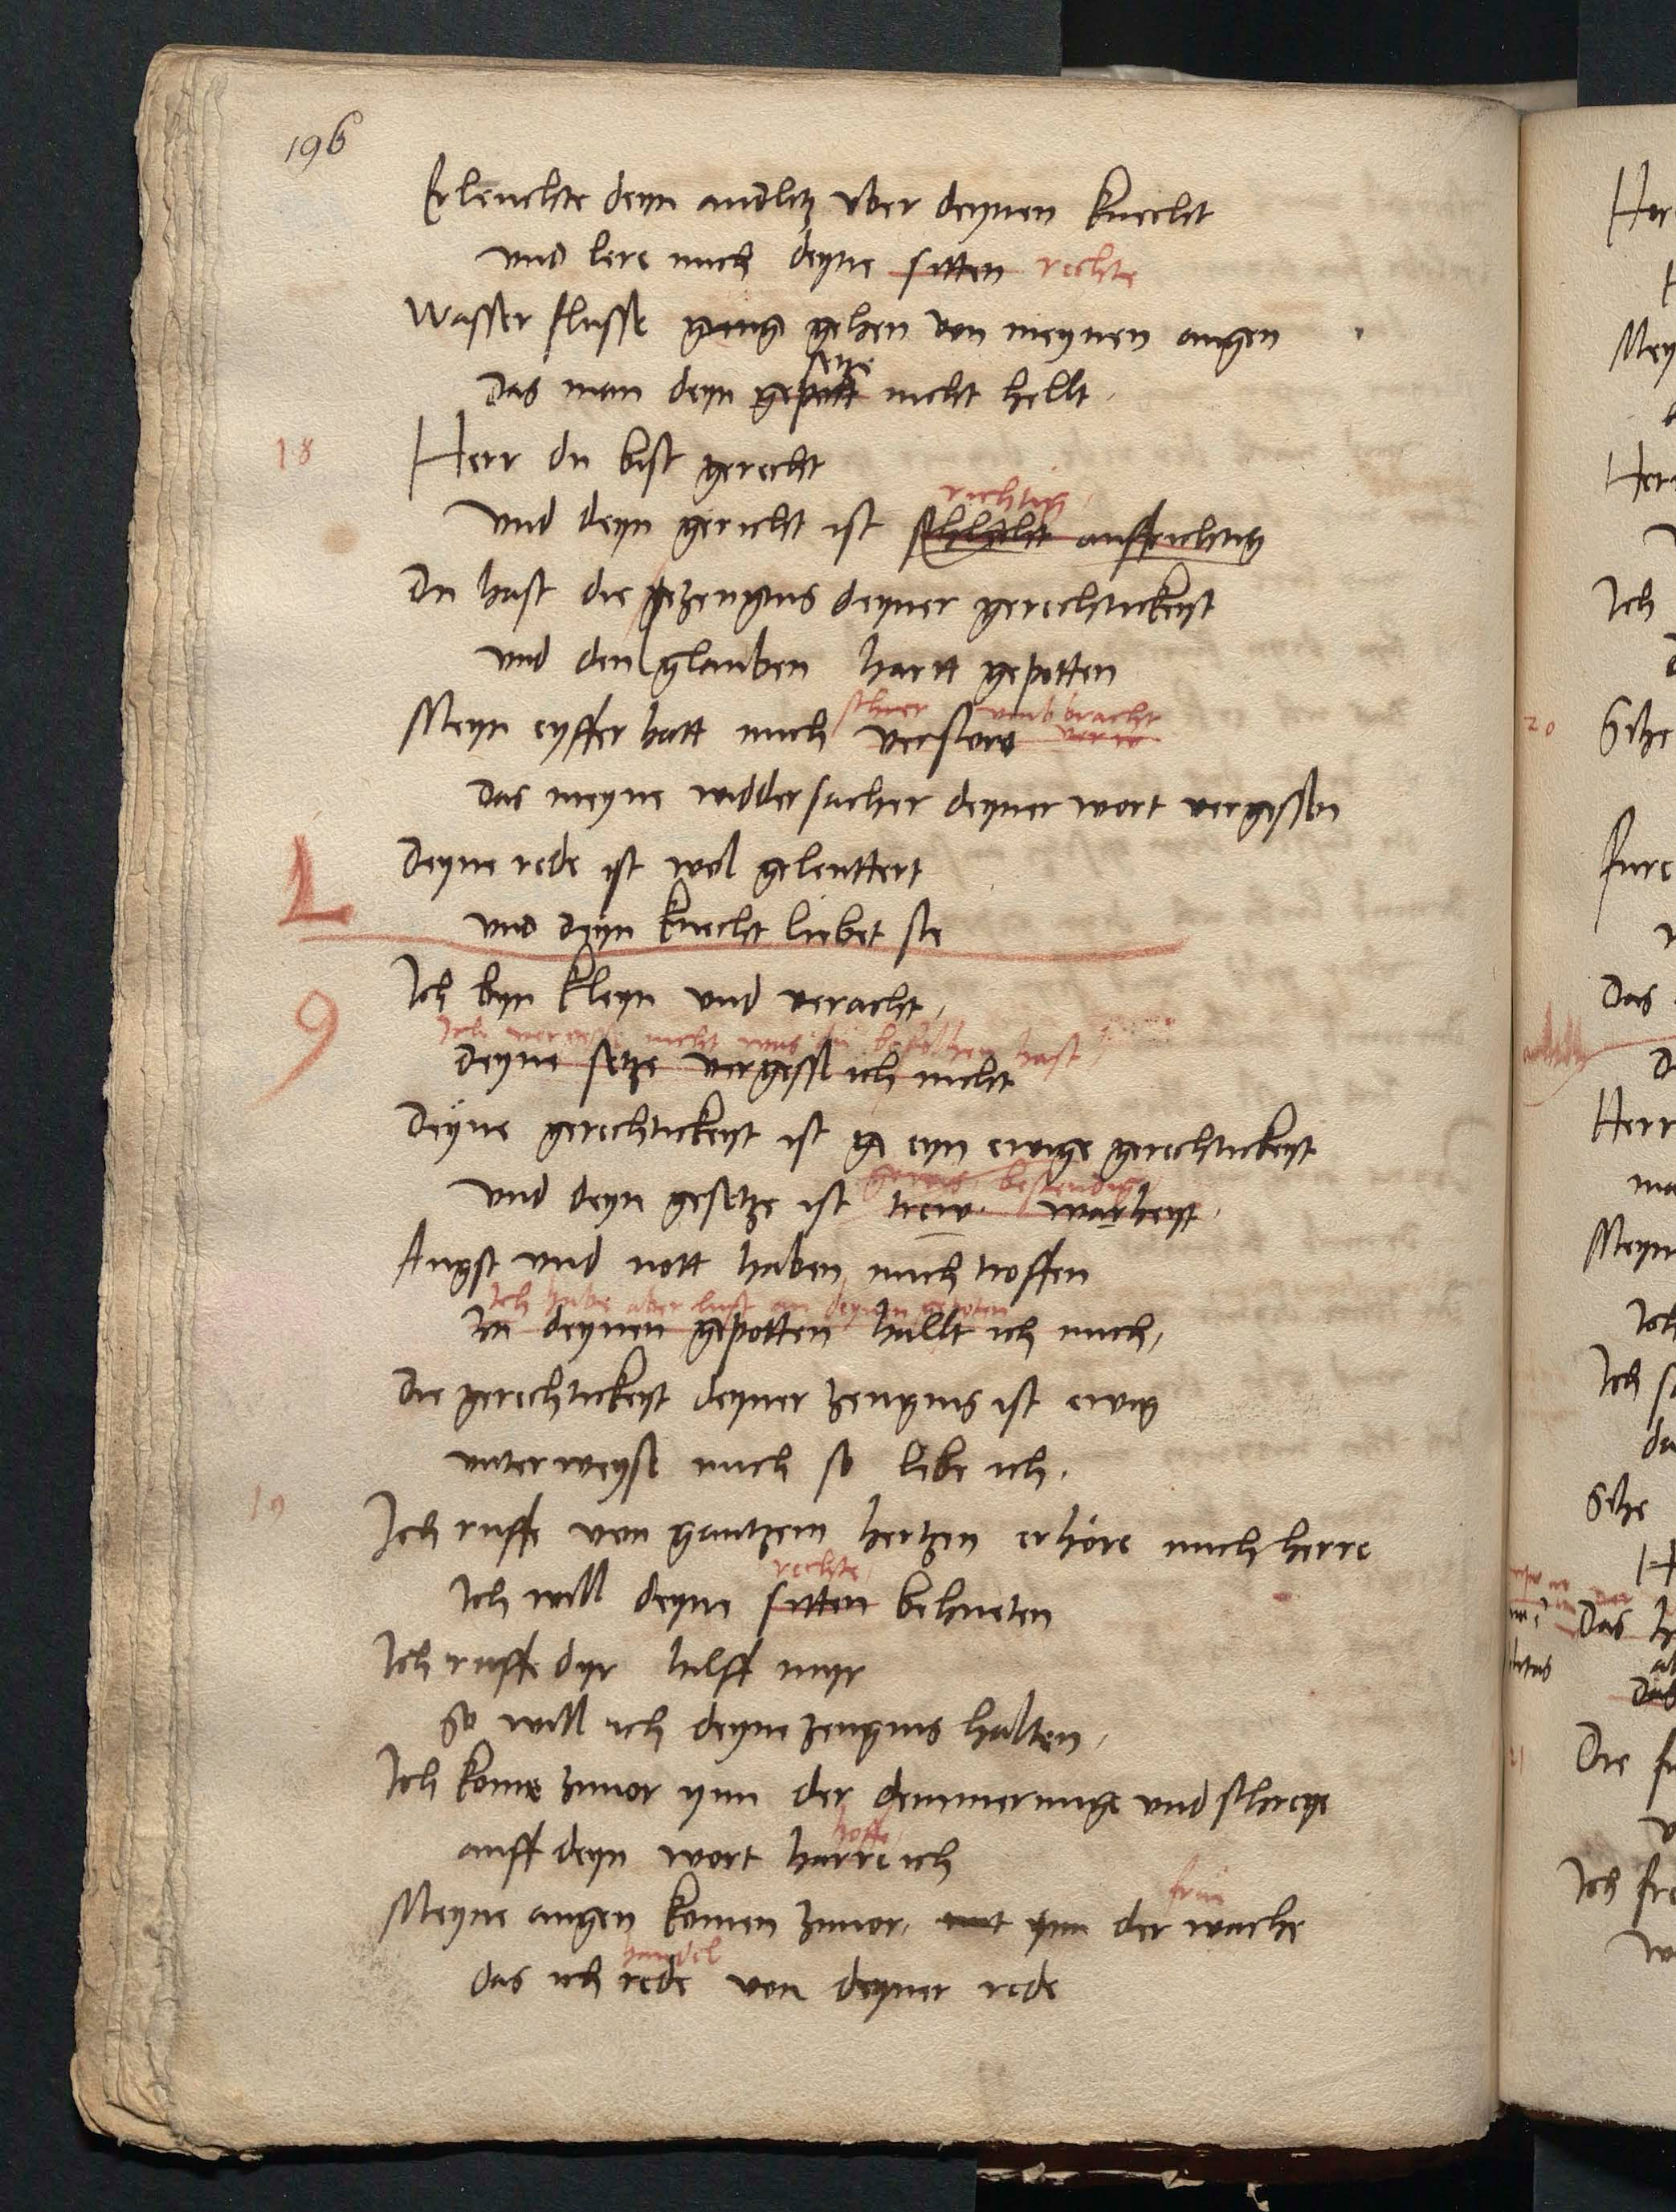 196
Erleuchte deyn andlitz vber deynen knecht
vnd lere mich deyne sitten rechte
Wasser flusse gang gehen von meynen augen
setze
das man deyn gepott nicht hellt.
18 Herr du bist gerecht
richtig
vnd deyn gericht ist schlecht auffrichtig
Du hast die gezeugnis deyner gerechtickeyt
vnd den glauben hartt gepotten
schier vmbbracht
Meyn eyffer hatt mich verstoret
das meyne widdersacher deyner wort vergessen
L Deyne rede ist wol geleuttert
vnd deyn knecht liebet sie
9 Ich byn kleyn vnd veracht,
Ich vergesse nicht was du befolhen hast
deyne setze vergess ich nicht
Deyne gerechtickeyt ist ge eyn ewige gerechtickeyt
gewis bestendig
vnd deyn gesetze ist trew. warheyt.
Angst vnd nott haben mich troffen
Ich habe aber lust an deynen gepoten
In deynen gepotten hallt ich mich,
Die gerechtickeyt deyner zeugnis ist ewig
vnterweyse mich so lebe ich.
19 Ich ruffe von gantzem hertzen erhöre mich herre
rechte
Ich will deyne sitten behueten
Ich ruffe dyr hilff myr
So will ich deyne zeugnis halten,
Ich kome zuuor ynn der demmerunge vnd schreye
hoffe
auff deyn wort harre ich
frue
Meyne augen komen zuuor, mit ynn der wache
handel
das ich rede von deyner rede
20